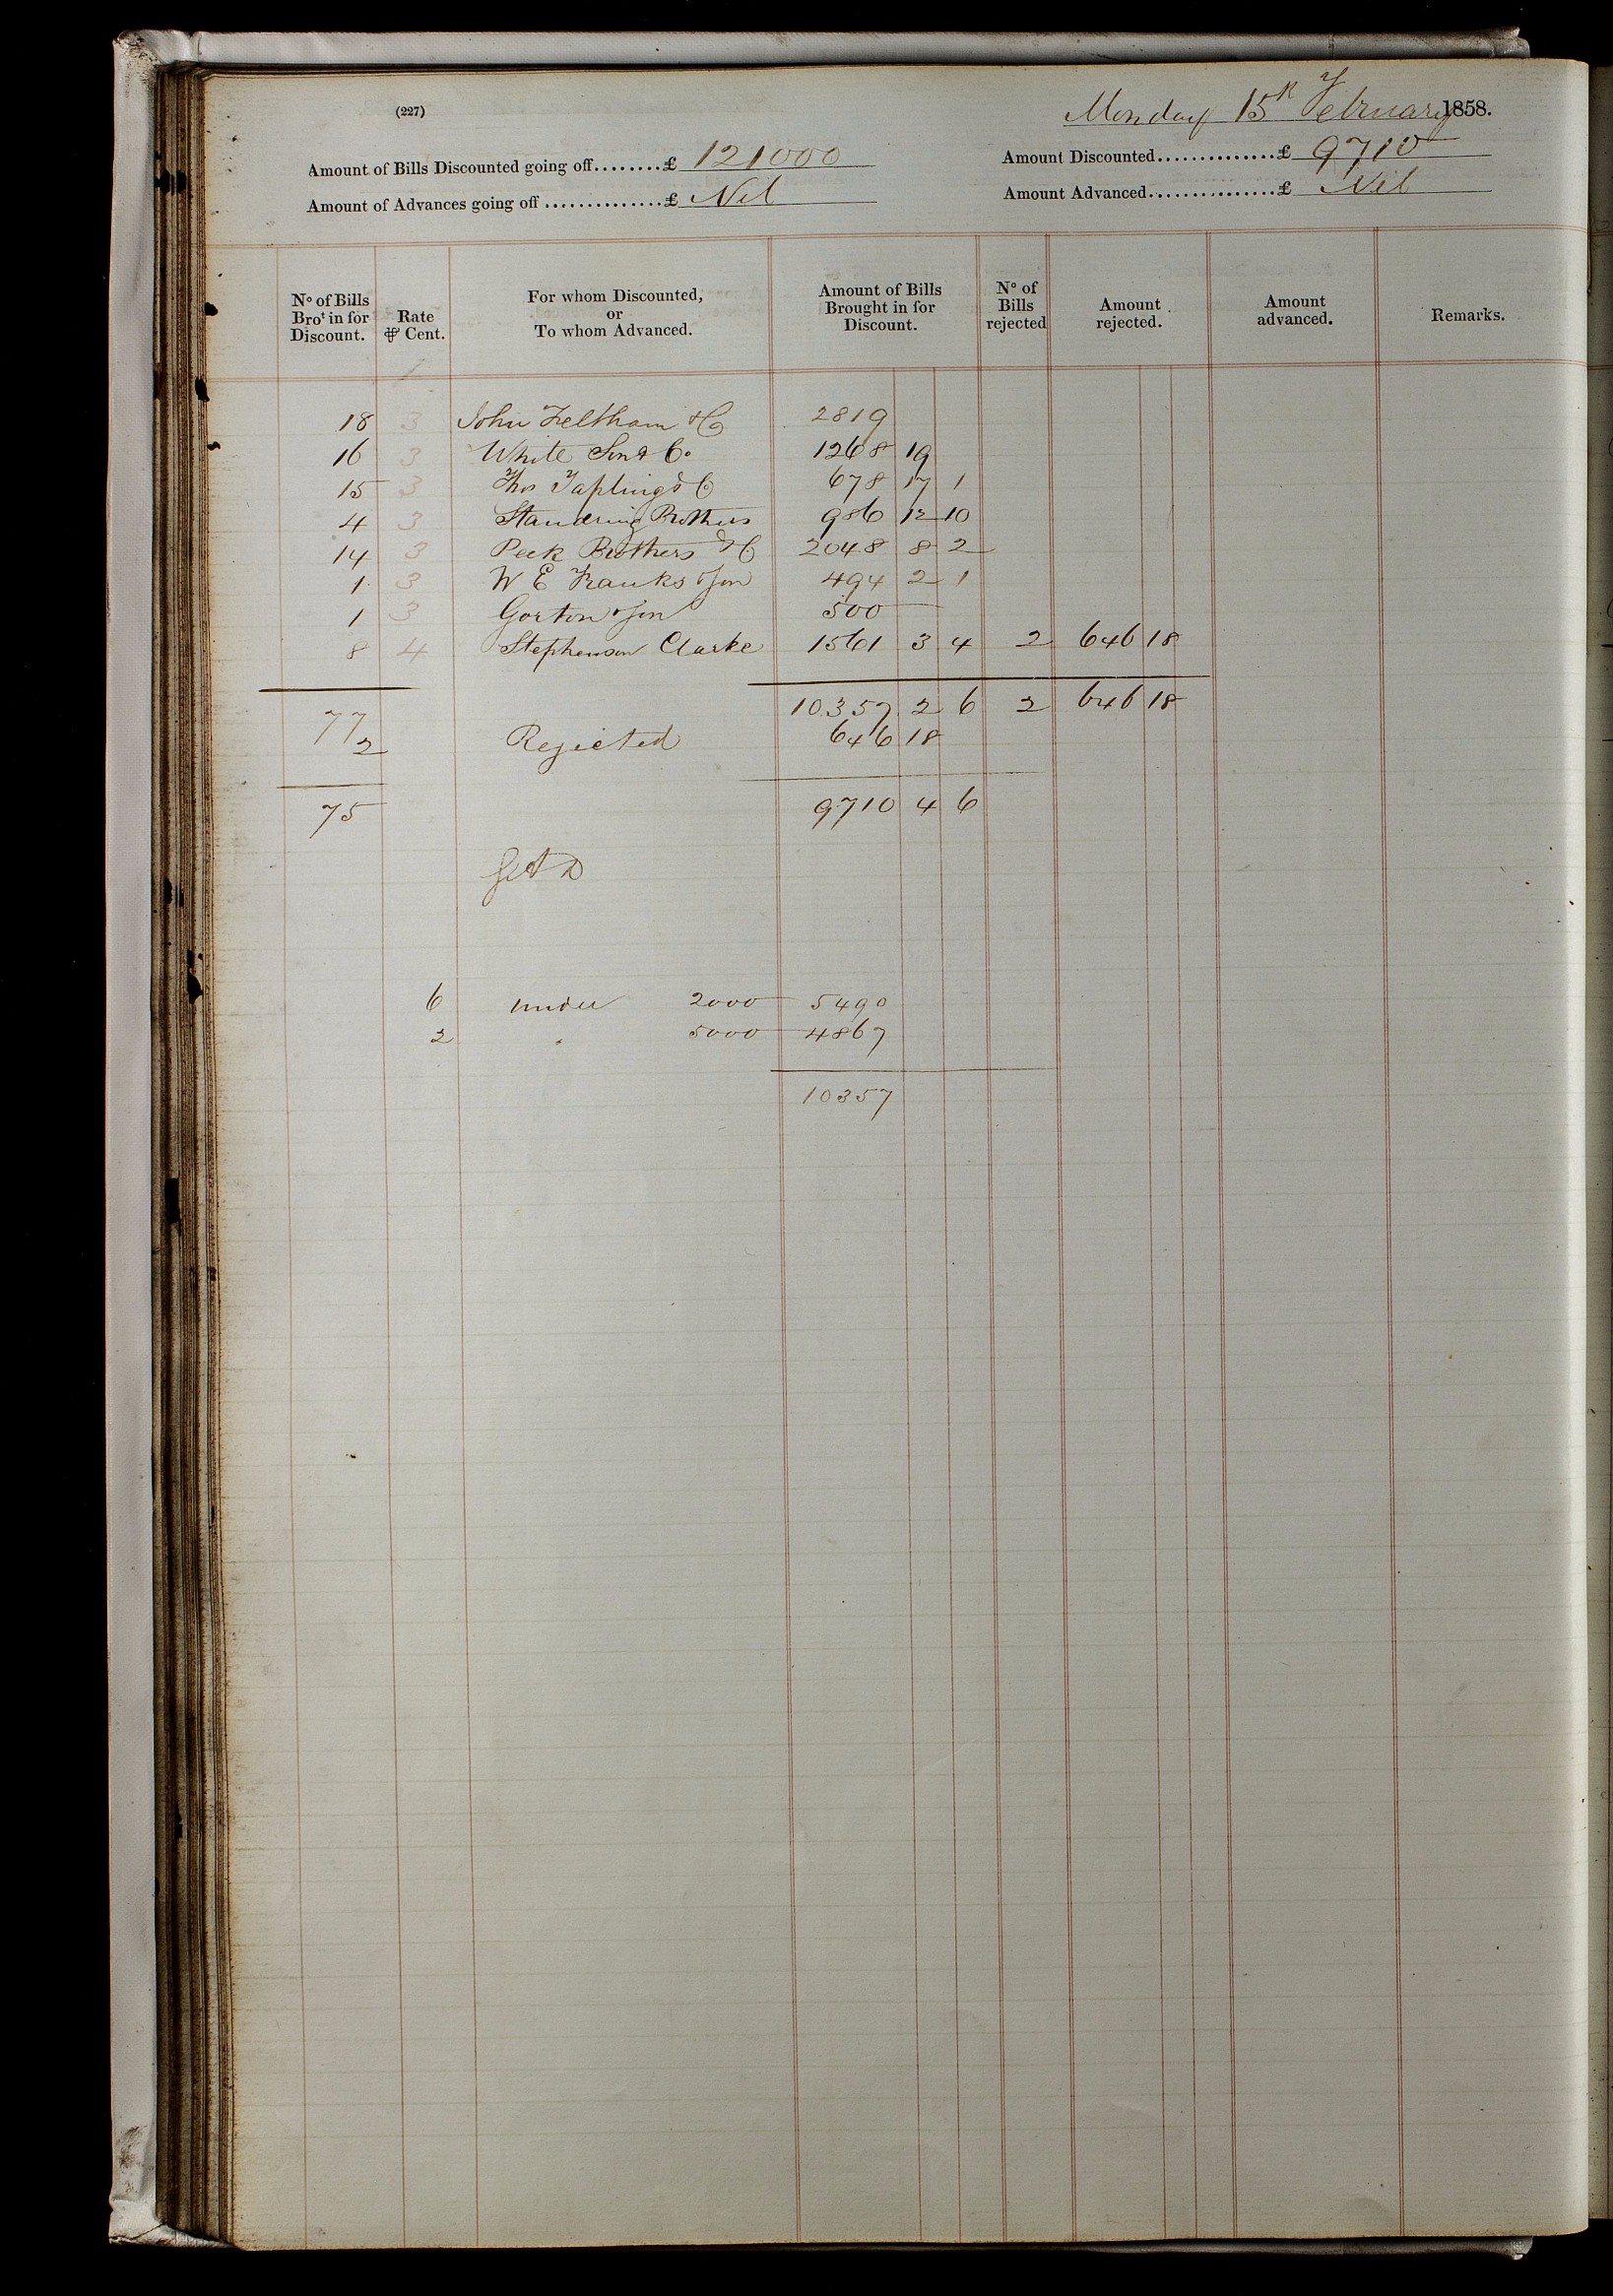 (227)
Monday 15th February 1858.
Amount of Bills Discounted going off........£ 121000
Amount Discounted..............£ 9710
Amount of Advances going off..............£ Nil
Amount Advanced...............£ Nil
No of Bills Brot in for Discount.
Rate ⅌ Cent.
For whom Discounted, or To whom Advanced.
Amount of Bills Brought in for Discount.
No of Bills rejected
Amount rejected.
Amount advanced.
Remarks.
18 3 John Feltham & Co 2819
16 3 White Son & Co. 1268 19
15 3 Thos Tapling & Co 678 17 1
4 3 Standring Brothers 986 12 10
14 3 Peek Brothers & Co 2048 8 2
1 3 W E Franks & Son 494 2 1
1 3 Gorton & Son 500
8 4 Stephenson Clarke 1561 3 4 2 646 18
77 10357 2 6 2 646 18
2 Rejected 646 18
75 9710 4 6
6 under 2000 5490
2 " 5000 4867
10357